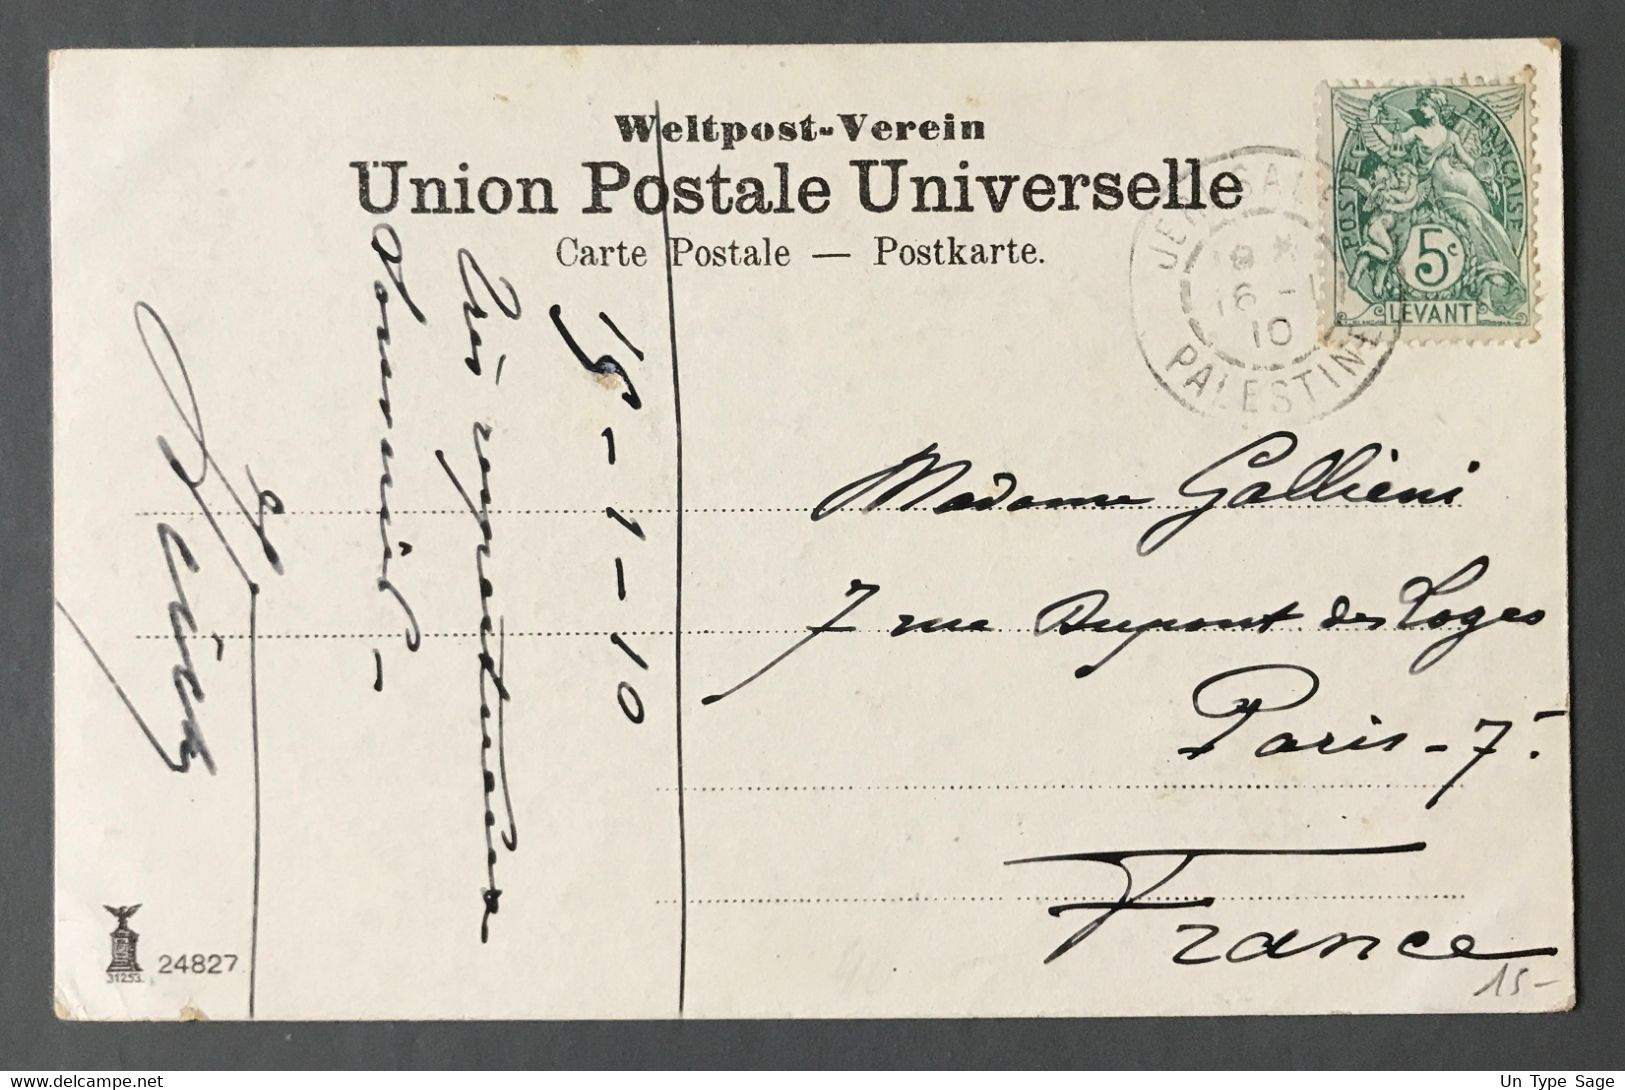 Weltpost-Verein
Union Postale Universelle
Carte Postale — Postkarte.
POSTE FRANÇAISE
5c
LEVANT
JERUSALEM
16 -1
10
PALESTINE
15-1-10
Très respectueux
Souvenir -
Madame Gallieni
7 rue Dupont des Loges
Paris - 7.
France
31253.
24827
15-
Un Type Sage